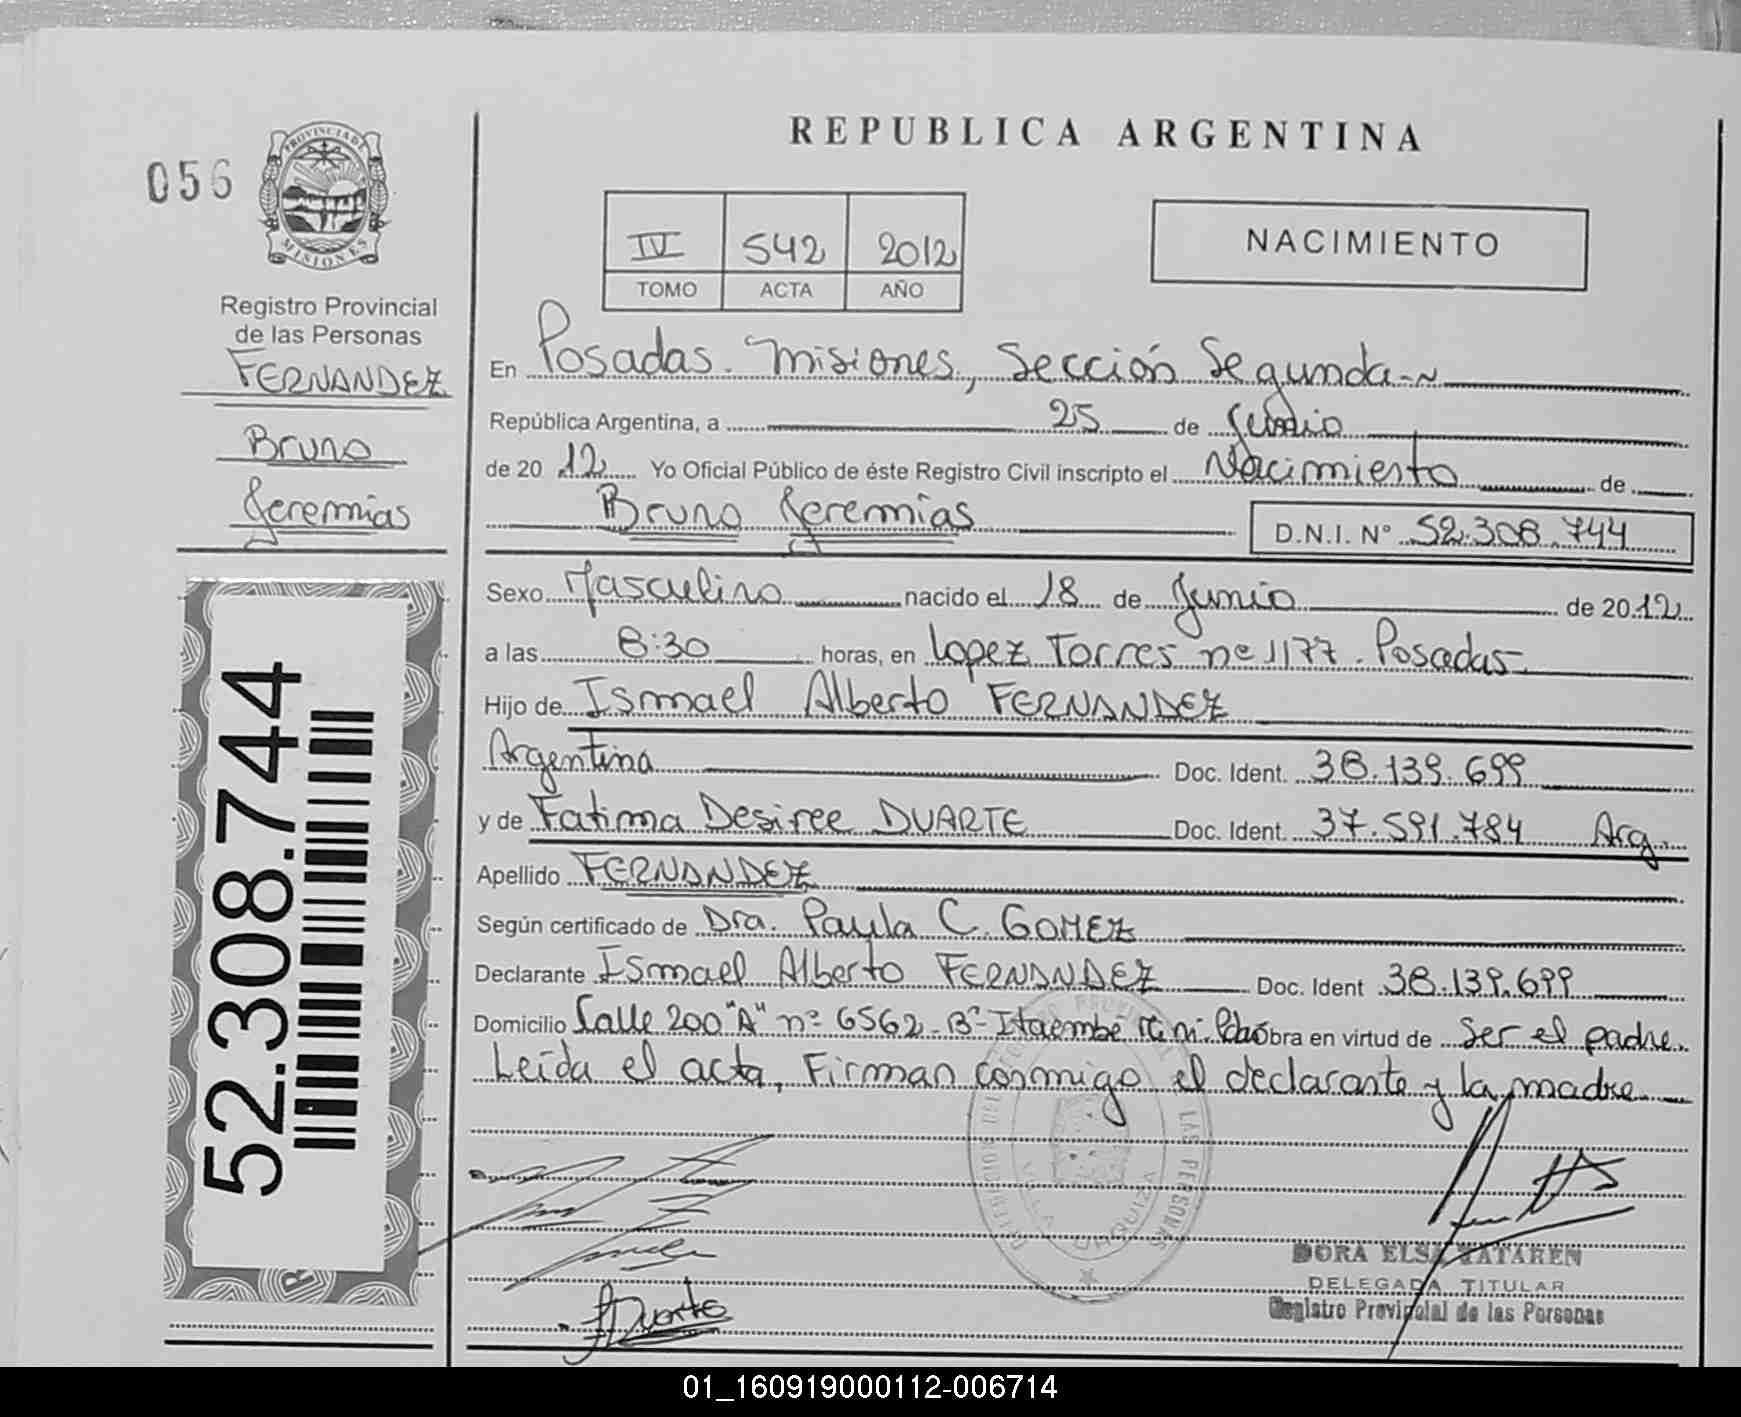 REPUBLICA ARGENTINA
056
PROVINCIA DE
MISIONES
Registro Provincial
de las Personas
FERNANDEZ
Bruno
Jeremias
52.308.744
IV 542 2012
TOMO ACTA AÑO
NACIMIENTO
En Posadas. Misiones, Sección Segunda
República Argentina, a 25 de Junio
de 2012 Yo Oficial Público de éste Registro Civil inscripto el Nacimiento de
Bruno Jeremías D.N.I. N° 52.308.744
Sexo Masculino nacido el 18 de Junio de 2012
a las 8:30 horas, en Lopez Torres nº 1177. Posadas
Hijo de Ismael Alberto FERNANDEZ
Argentina Doc. Ident. 38.139.699
y de Fatima Desiree DUARTE Doc. Ident. 37.591.784 Arg.
Apellido FERNANDEZ
Según certificado de Dra. Paula C. GOMEZ
Declarante Ismael Alberto FERNANDEZ Doc. Ident 38.139.699
Domicilio Calle 200 "A" nº 6562 - Bº Itaembe Mini. Obra en virtud de ser el padre.
Leída el acta, Firman conmigo el declarante y la madre
LAS PERSONAS
VILLA URQUIZA
Duarte
DORA ELSA TATAREN
DELEGADA TITULAR
Registro Provincial de las Personas
01_160919000112-006714